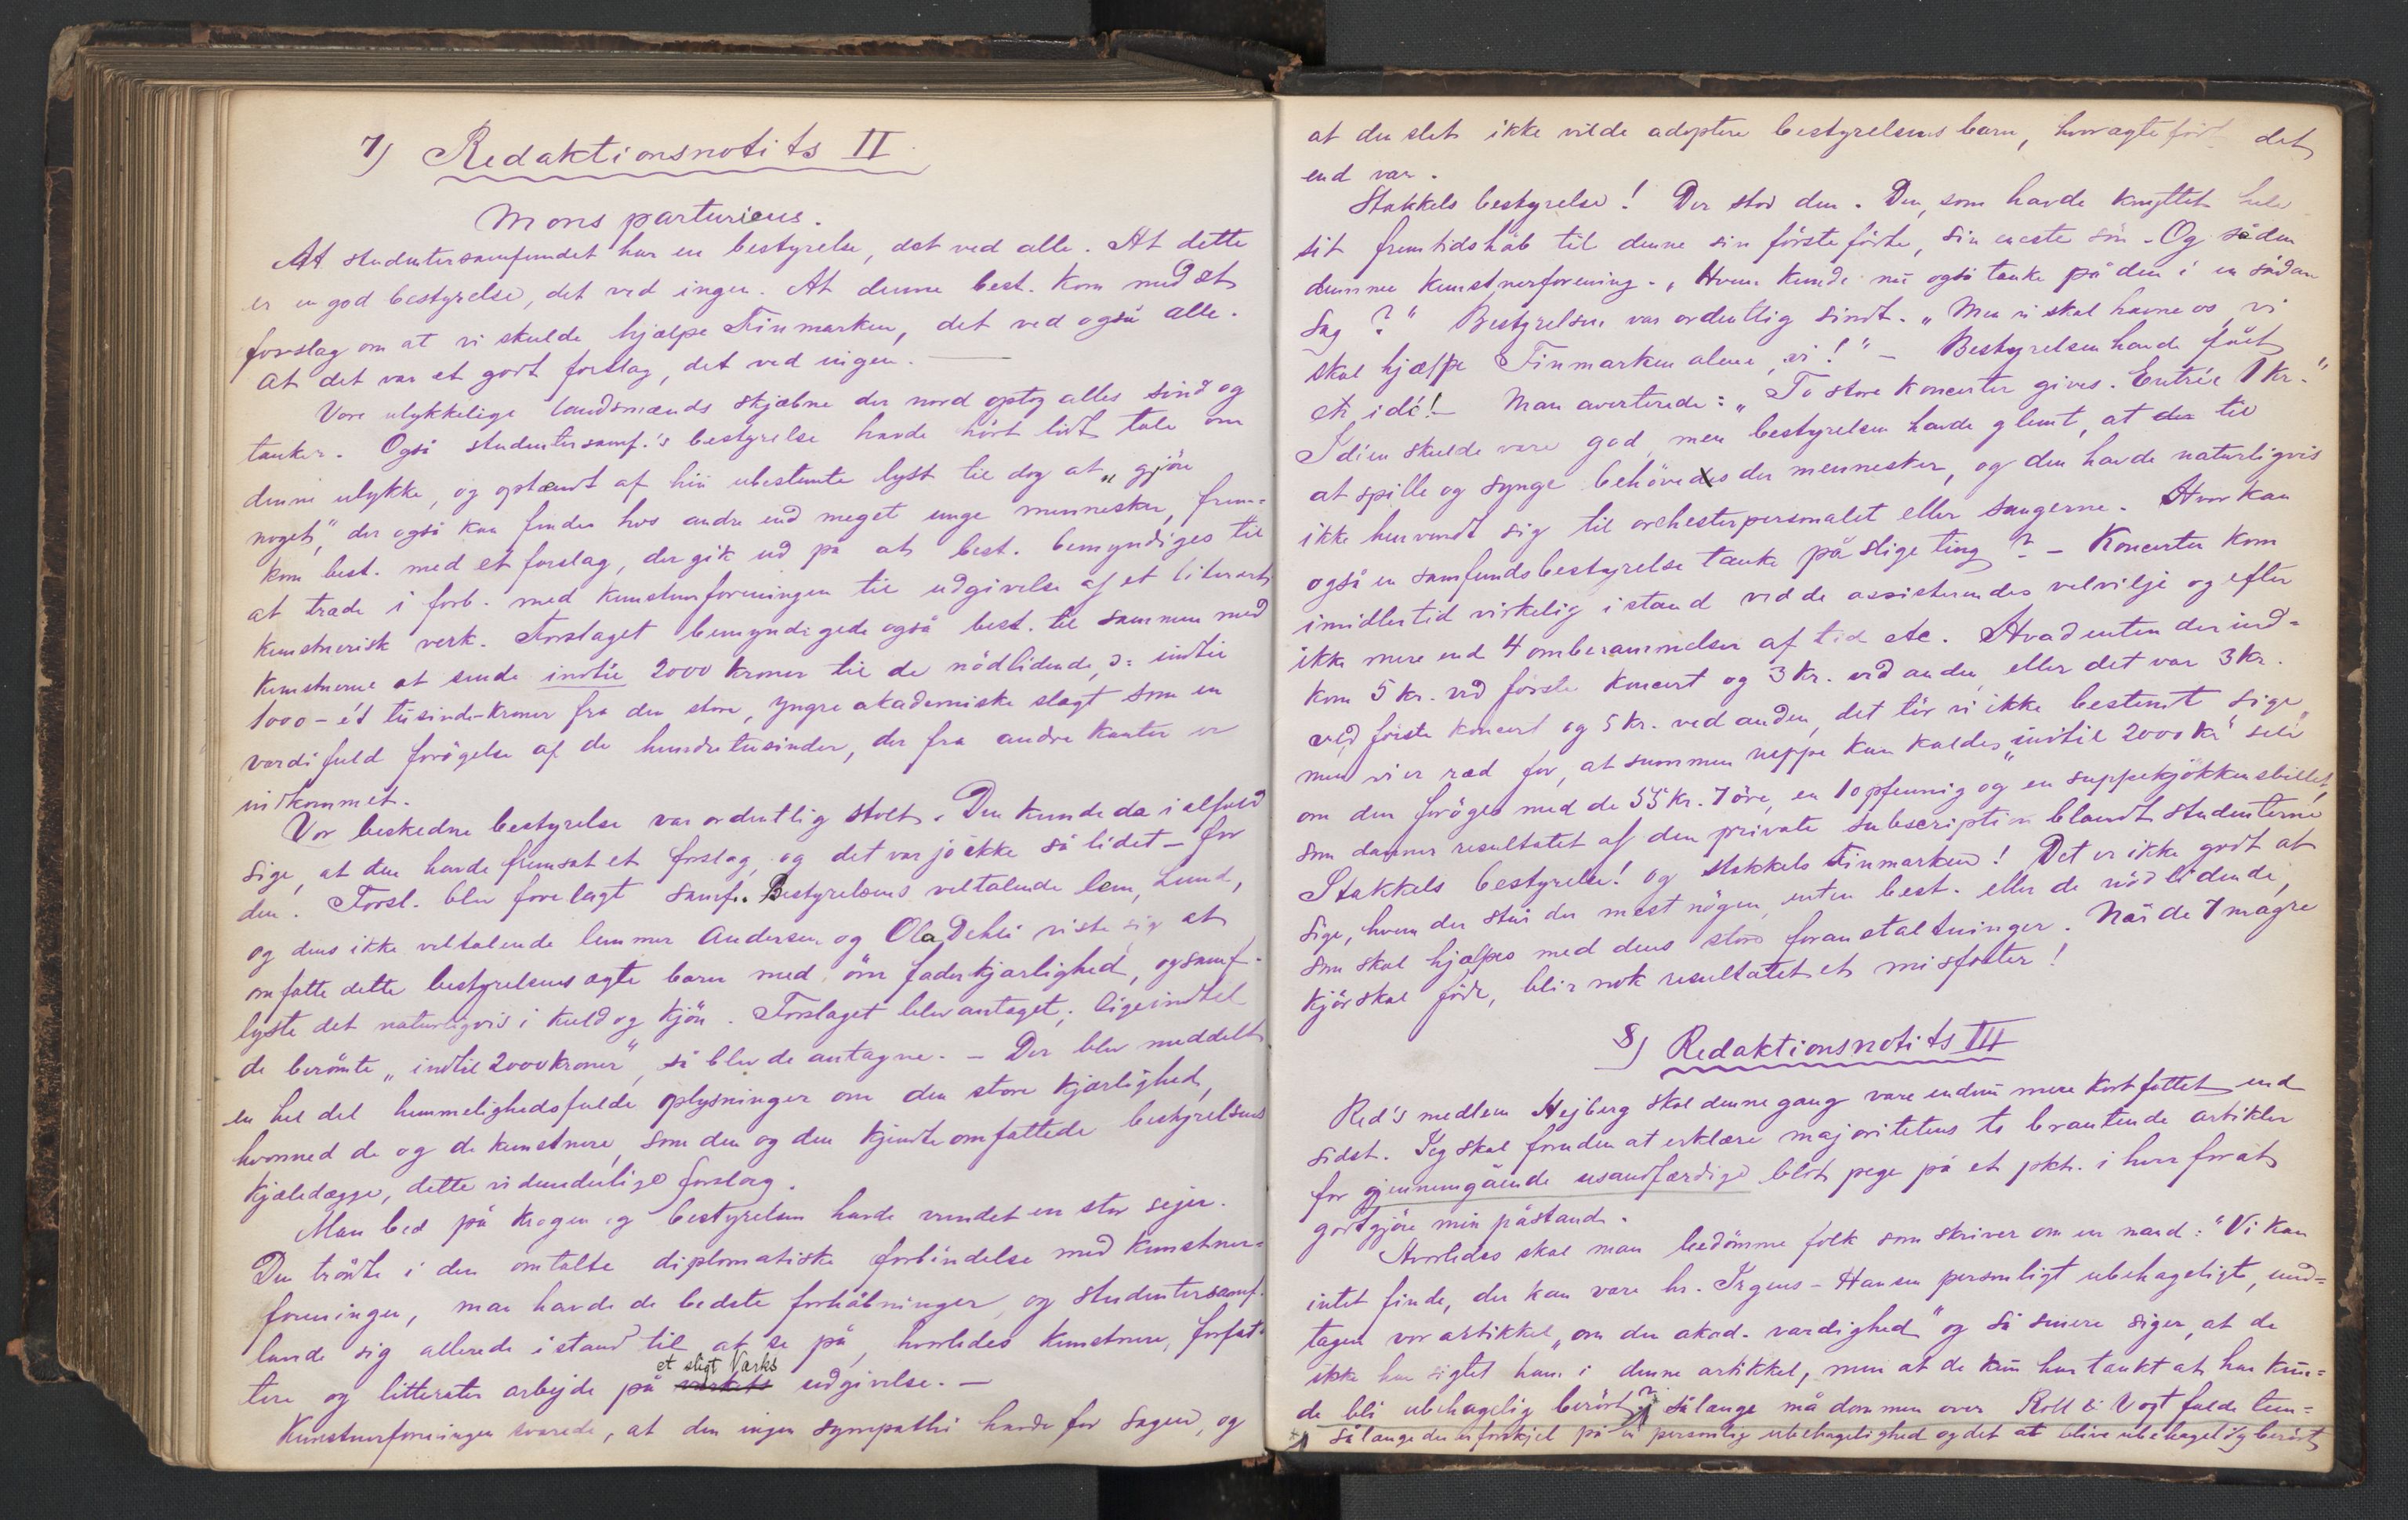 7) Redaktionsnotits II.
Mons parturiens.
At studentersamfundet har en bestyrelse, det ved alle. At dette
er en god bestyrelse, det ved ingen. At denne best. kom med et
forslag om at vi skulde hjælpe Finmarken, det ved også alle.
At det var et godt forslag, det ved ingen. —
Vore ulykkelige landsmænds skjæbne der nord optog alles sind og
tanker. Også studentersamf.'s bestyrelse havde hört lidt tale om
denne ulykke, og optændt af hin ubestemte lyst til dog at „gjöre
noget", der også kan findes hos andre end meget unge mennesker, frem=
kom best. med et forslag, der gik ud på at best. bemyndiges til
at træde i forb. med kunstnerforeningen til udgivelse af et literært
kunstnerisk verk. Forslaget bemyndigede også best. til sammen med
kunstnerne at sende indtil 2000 kroner til de nödlidende, ɔ: indtil
1000 – ét tusinde – kroner fra den store, yngre akademiske slægt som en
værdifuld forögelse af de hundretusinder, der fra andre kanter er
indkommet.
Vor beskedne bestyrelse var ordentlig stolt. Den kunde da i alfald
sige, at den havde fremsat et forslag, og det var jo ikke så lidet – for
den. Forsl. blev forelagt samf. Bestyrelsens veltalende lem, Lund,
og dens ikke veltalende lemmer Andersen og Ola Dehli viste sig at
omfatte dette bestyrelsens ægte barn med öm faderkjærlighed, og samf.
lyste det naturligvis i kuld og kjön. Forslaget blev antaget; ligeindtil
de berömte „indtil 2000 kroner", så blev de antagne. – Der blev meddelt
en hel del hemmelighedsfulde oplysninger om den store kjærlighed,
hvormed de og de kunstnere, som den og den kjendte omfattede bestyrelsens
kjæledægge, dette vidunderlige forslag.
Man bed på krogen og bestyrelsen havde vundet en stor sejer.
Den trådte i den omtalte diplomatiske forbindelse med kunstner=
foreningen, man havde de bedste forhåbninger og studentersamf.
lavede sig allerede istand til at se på, hvorledes kunstnere, forfat=
tere og litterater arbejde på et sligt Værks udgivelse. —
Kunstnerforeningen svarede, at den ingen sympathi havde for sagen, og
at den slet ikke vilde adoptere bestyrelsens barn, hvor ægte född det
end var.
Stakkels bestyrelse! Der stod den. Den, som havde knyttet hele
sit fremtidshåb til denne sin förste förte, sin eneste sön. Og så den
dumme kunstnerforening. „Hvem kunde nu også tænke på den i en sådan
sag?" Bestyrelsen var ordentlig sindt. „Men vi skal hævne os, vi
skal hjælpe Finmarken alene, vi!" – Bestyrelsen havde fået
en idé! – Man averterede: „To store koncerter gives. Entrée 1 kr."
Idéen skulde være god, men bestyrelsen havde glemt, at der til
at spille og synge behövedes der mennesker, og den havde naturligvis
ikke henvendt sig til orchesterpersonalet eller sangerne. Hvor kan
også en samfundsbestyrelse tænke på slige ting? – Koncerter kom
imidlertid virkelig istand ved de assisterendes velvilje og efter
ikke mere end 4 omberammelser af tid etc. Hvad enten der ind=
kom 5 kr. ved förste koncert og 3 kr. ved anden, eller det var 3 kr.
ved förste koncert og 5 kr. ved anden, det tör vi ikke bestemt sige,
men vi er ræd for, at summen neppe kan kaldes „indtil 2000 kr" selv
om den foröges med de 55 kr. 7 öre, en 10 pfennig og en suppekjökkenbillet,
som danner resultatet af den private subscription blandt studenterne
Stakkels bestyrelse! og stakkels Finmarken! Det er ikke godt at
sige, hvem der står der mest nögen, enten best. eller de nödlidende,
som skal hjælpes med dens store foranstaltninger. Når de 7 magre
kjör skal föde, blir nok resultatet et misfoster!
8) Redaktionsnotits III
Red's medlem Hejberg skal denne gang være endnu mere kortfattet end
sidst. Jeg skal foruden at erklære majoritetens to brautende artikler
for gjennemgående usandfærdige blot pege på et pkt. i hver for at
godtgjöre min påstand.
Hvorledes skal man bedömme folk som skriver om en mand: "Vi kan
intet finde, der kan være hr. Irgens-Hansen personligt ubehageligt, und=
tagen vor artikkel „om den akad. værdighed" og så senere siger, at de
ikke har sigtet ham i denne artikkel, men at de kun har tænkt at han kun=
de bli ubehagelig berört? Sålænge må dommen over Koll & Vogt falde
Sålænge der er forskjel på en personlig ubehagelighed og det at blive ubehagelig berört